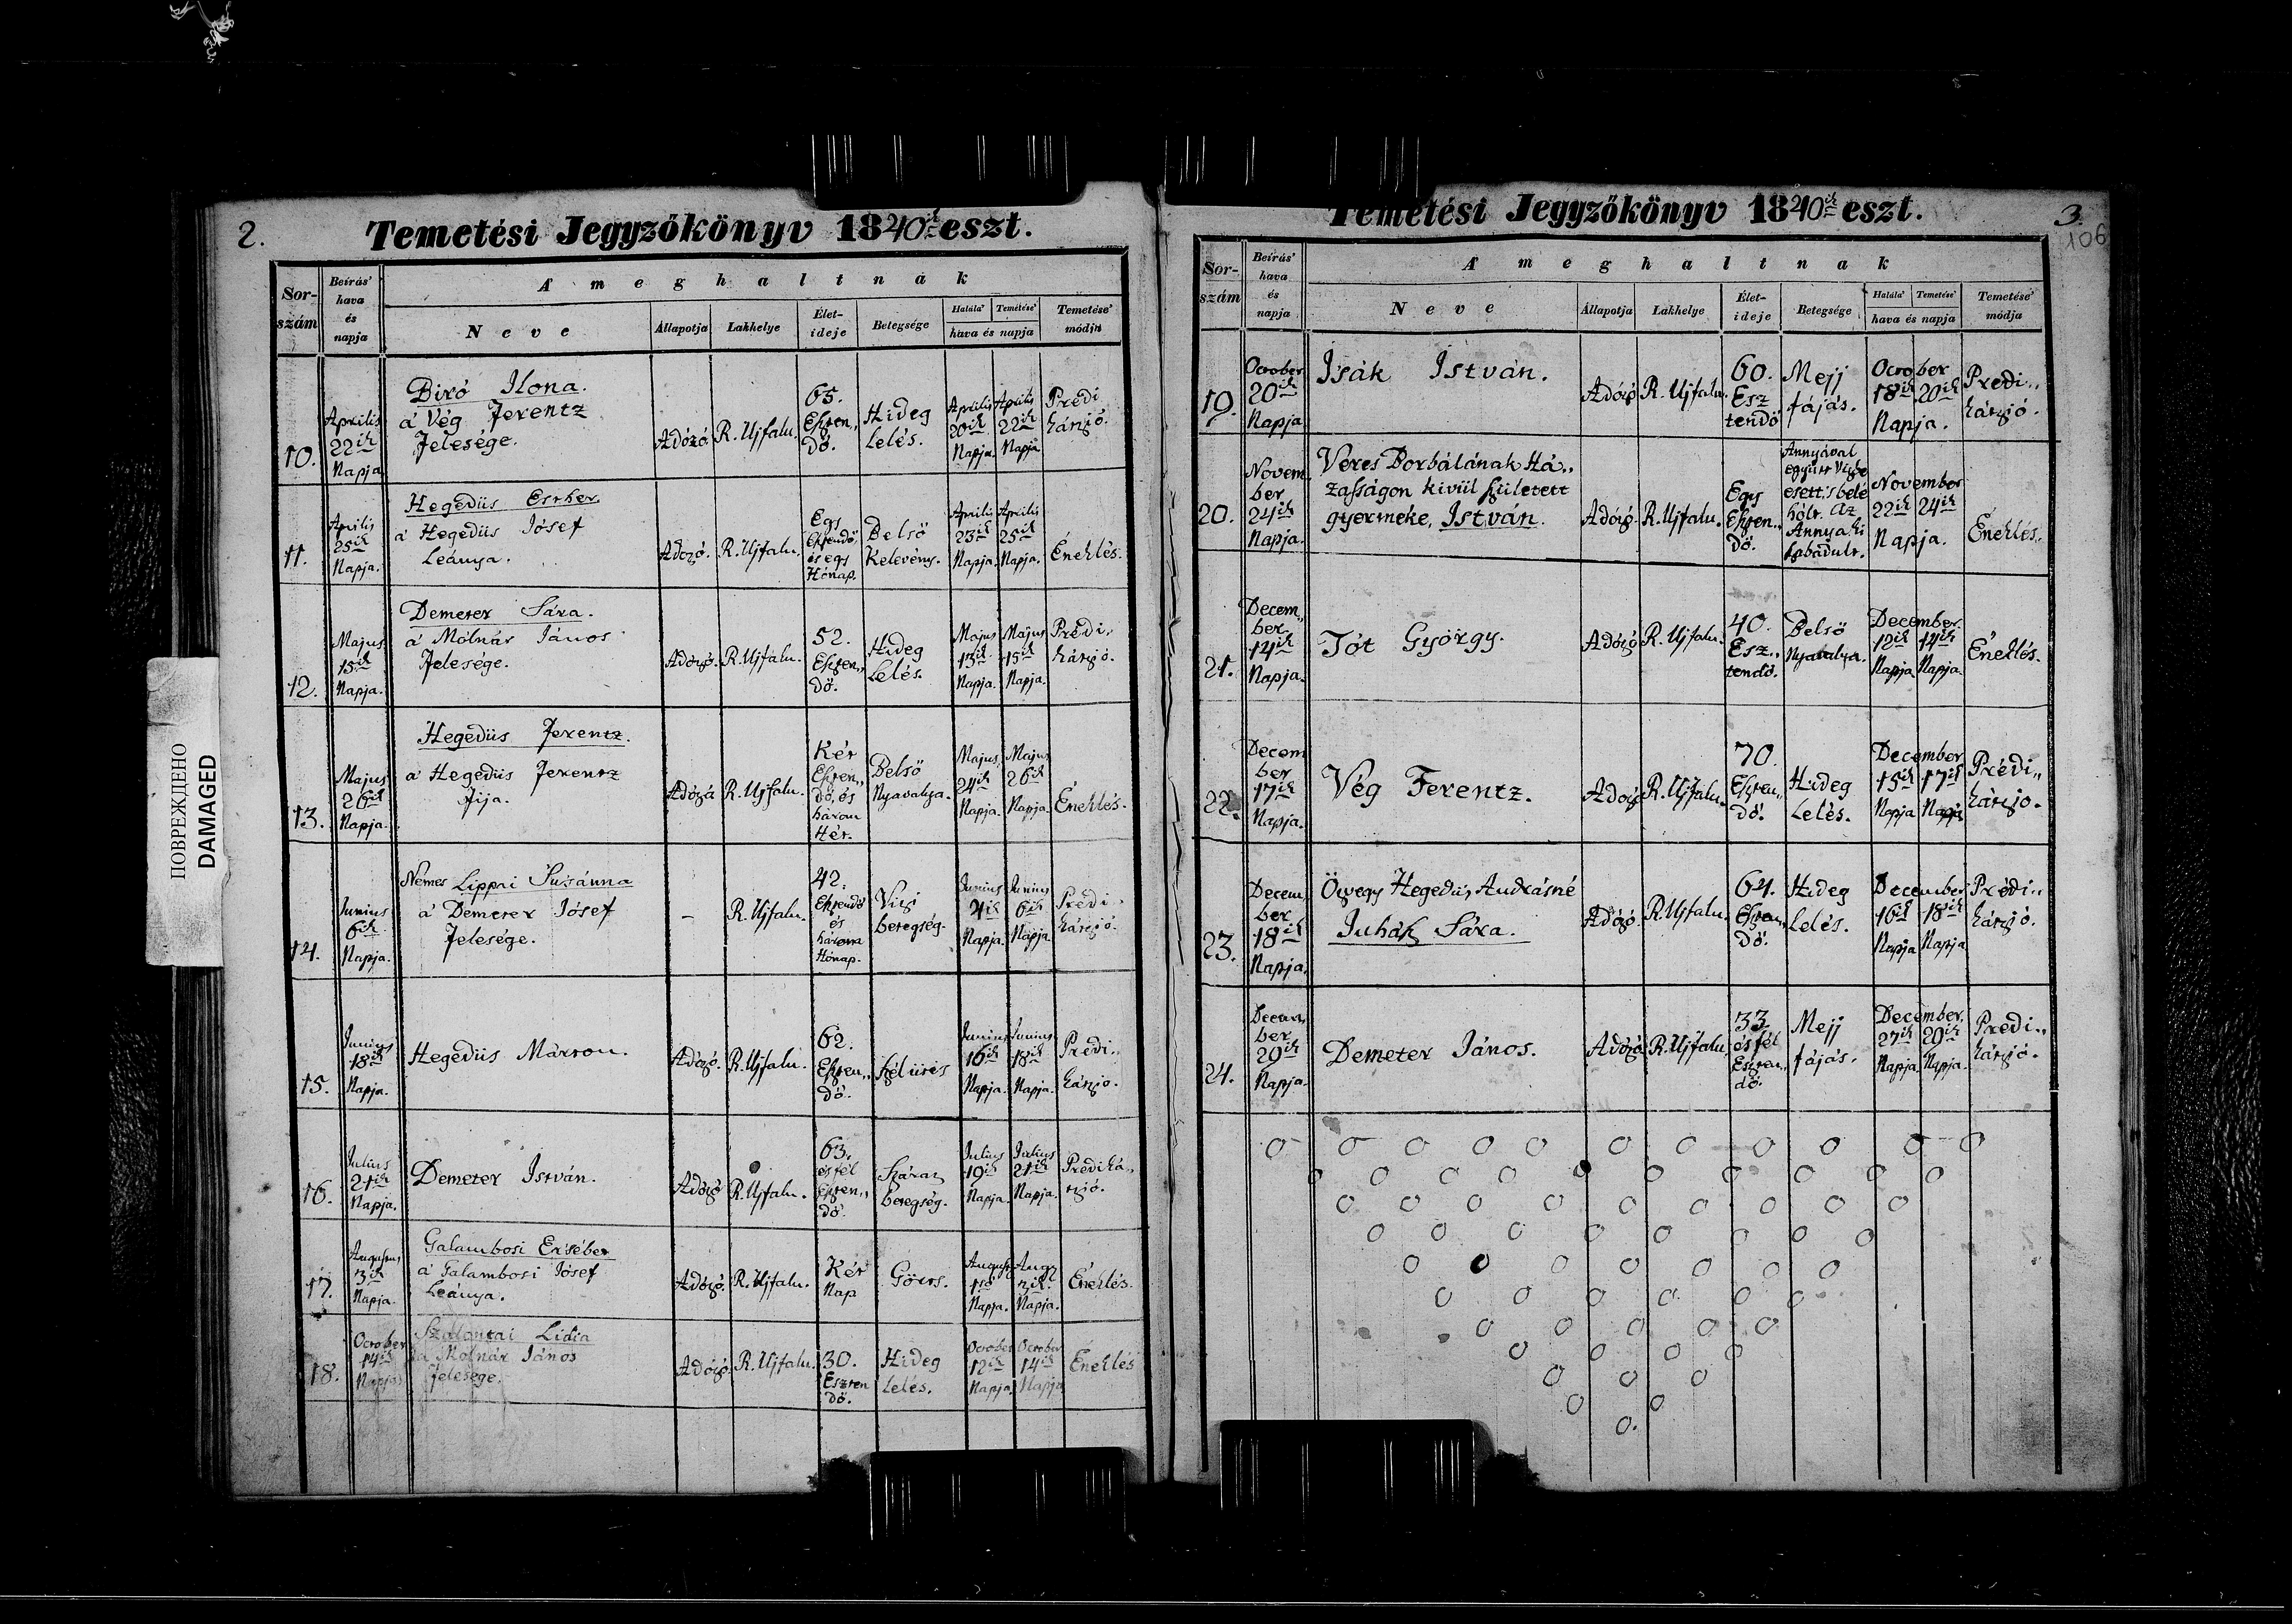 2.
Temetési Jegyzőkönyv 1840ik eszt.
Sor-szám
Beírás' hava és napja
A' meghaltnak
Neve
Állapotja
Lakhelye
Élet-ideje
Betegsége
Halála' Temetése'
hava és napja
Temetése' módja
10.
Aprilis 22ik Napja
Biró Ilona.
á Vég Ferentz
Felesége.
Adózó
R. Ujfalu.
65. Eszten,, dö.
Hideg Lelés.
Aprilis 20ik Napja
Aprilis 22ik Napja
Prédi kátzió.
11.
Aprilis 25ik Napja.
Hegedüs Esther
á Hegedüs Jósef
Leánya.
Adozó.
R. Ujfalu.
Egy Esztendö, és egy Hónap.
Belsö Kelevény.
Aprilis 23ik Napja.
Aprilis 25ik Napja.
Éneklés.
12.
Majus 15ik Napja.
Demeter Sára.
á Mólnár János
Felesége.
Adózó.
R. Ujfalu.
52. Eszten,, dö.
Hideg Lelés.
Majus 13ik Napja.
Majus 15ik Napja.
Prédi,, kátzió.
13.
Majus 26ik Napja.
Hegedüs Ferentz.
á Hegedüs Ferentz
Fija.
Adózó
R. Ujfalu.
Két Eszten,, dö, és három Hét.
Belsö Nyavalya.
Majus 24ik Napja.
Majus 26ik Napja.
Éneklés.
14.
Junius 6ik Napja.
Nemes Lippai Susánna
á Demeter Jósef
Felesége.
-
R. Ujfalu.
42. Esztendö és három Hónap.
Vizi betegség.
Junius 4ik Napja.
Junius 6ik Napja.
Prédi,, kátzió.
15.
Junius 18ik Napja.
Hegedüs Márton.
Adózó.
R. Ujfalu.
62. Eszten,, dö.
szél ütés
Junius 16ik Napja.
Junius 18ik Napja.
Prédi,, kátzió.
16.
Julius 21ik Napja.
Demeter István.
Adózó
R. Ujfalu.
63. és fél Eszten,, dö.
Száraz betegség.
Julius 19ik Napja.
Julius 21ik Napja.
Prédiká,, tzió.
17.
3ik Napja.
Galambosi Ersébet
á Galambosi Jósef
Leánya.
Adózó.
R. Ujfalu.
Két Nap
Görts.
1ső Napja.
3ik Napja.
Éneklés.
18.
October 14ik Napja
Szalontai Lidia
á Molnár János
felesége.
Adózó.
R. Ujfalu.
30. Eszten dö.
Hideg Lelés.
October 12ik Napja
October 14ik Napja
Éneklés
Temetési Jegyzőkönyv 1840ik eszt.
3.
106
Sor-szám
Beírás' hava és napja
A' meghaltnak
Neve
Állapotja
Lakhelye
Élet-ideje
Betegsége
Halála' Temetése'
hava és napja
Temetése' módja
19.
October 20ik Napja
Isák István.
Adózó
R. Ujfalu.
60. Esz tendö
Mejj fájás.
October 18ik 20ik Napja.
Prédi,, kátzió.
20.
Novem,, ber 24ik Napja.
Veres Borbálának Há,,
zasságon kivül született
gyermeke, István.
Adózó.
R. Ujfalu.
Egy Eszten,, dö.
Annyával együtt Vizbe esett, s belé hólt. Az Annya ki szabadult.
November 22ik 24ik Napja.
Éneklés.
21.
Decem,, ber 14ik Napja.
Tót György.
Adózó
R. Ujfalu.
40. Esz,, tendö.
Belsö Nyavalya.
December 12ik 14ik Napja Napja.
Éneklés.
22.
Decem ber 17ik Napja.
Vég Ferentz.
Adózó
R. Ujfalu.
70. Eszten,, dö.
Hideg Lelés.
December 15ik 17ik Napja Napja
Prédi,, kátzjo.
23.
Decem,, ber 18ik Napja.
Özvegy Hegedüs Andrásné
Juhász Sára.
Adózó
R. Ujfalu.
64. Eszten,, dö.
Hideg Lelés.
December 16ik 18ik Napja Napja
Prédi,, kátzió.
24.
Decem,, ber 29ik Napja.
Demeter János.
Adózó
R. Ujfalu.
33 és fél Eszten,, dö.
Mejj fájás.
December 27ik 29ik Napja Napja.
Prédi,, kátzió.
ПОВРЕЖДЕНО
DAMAGED